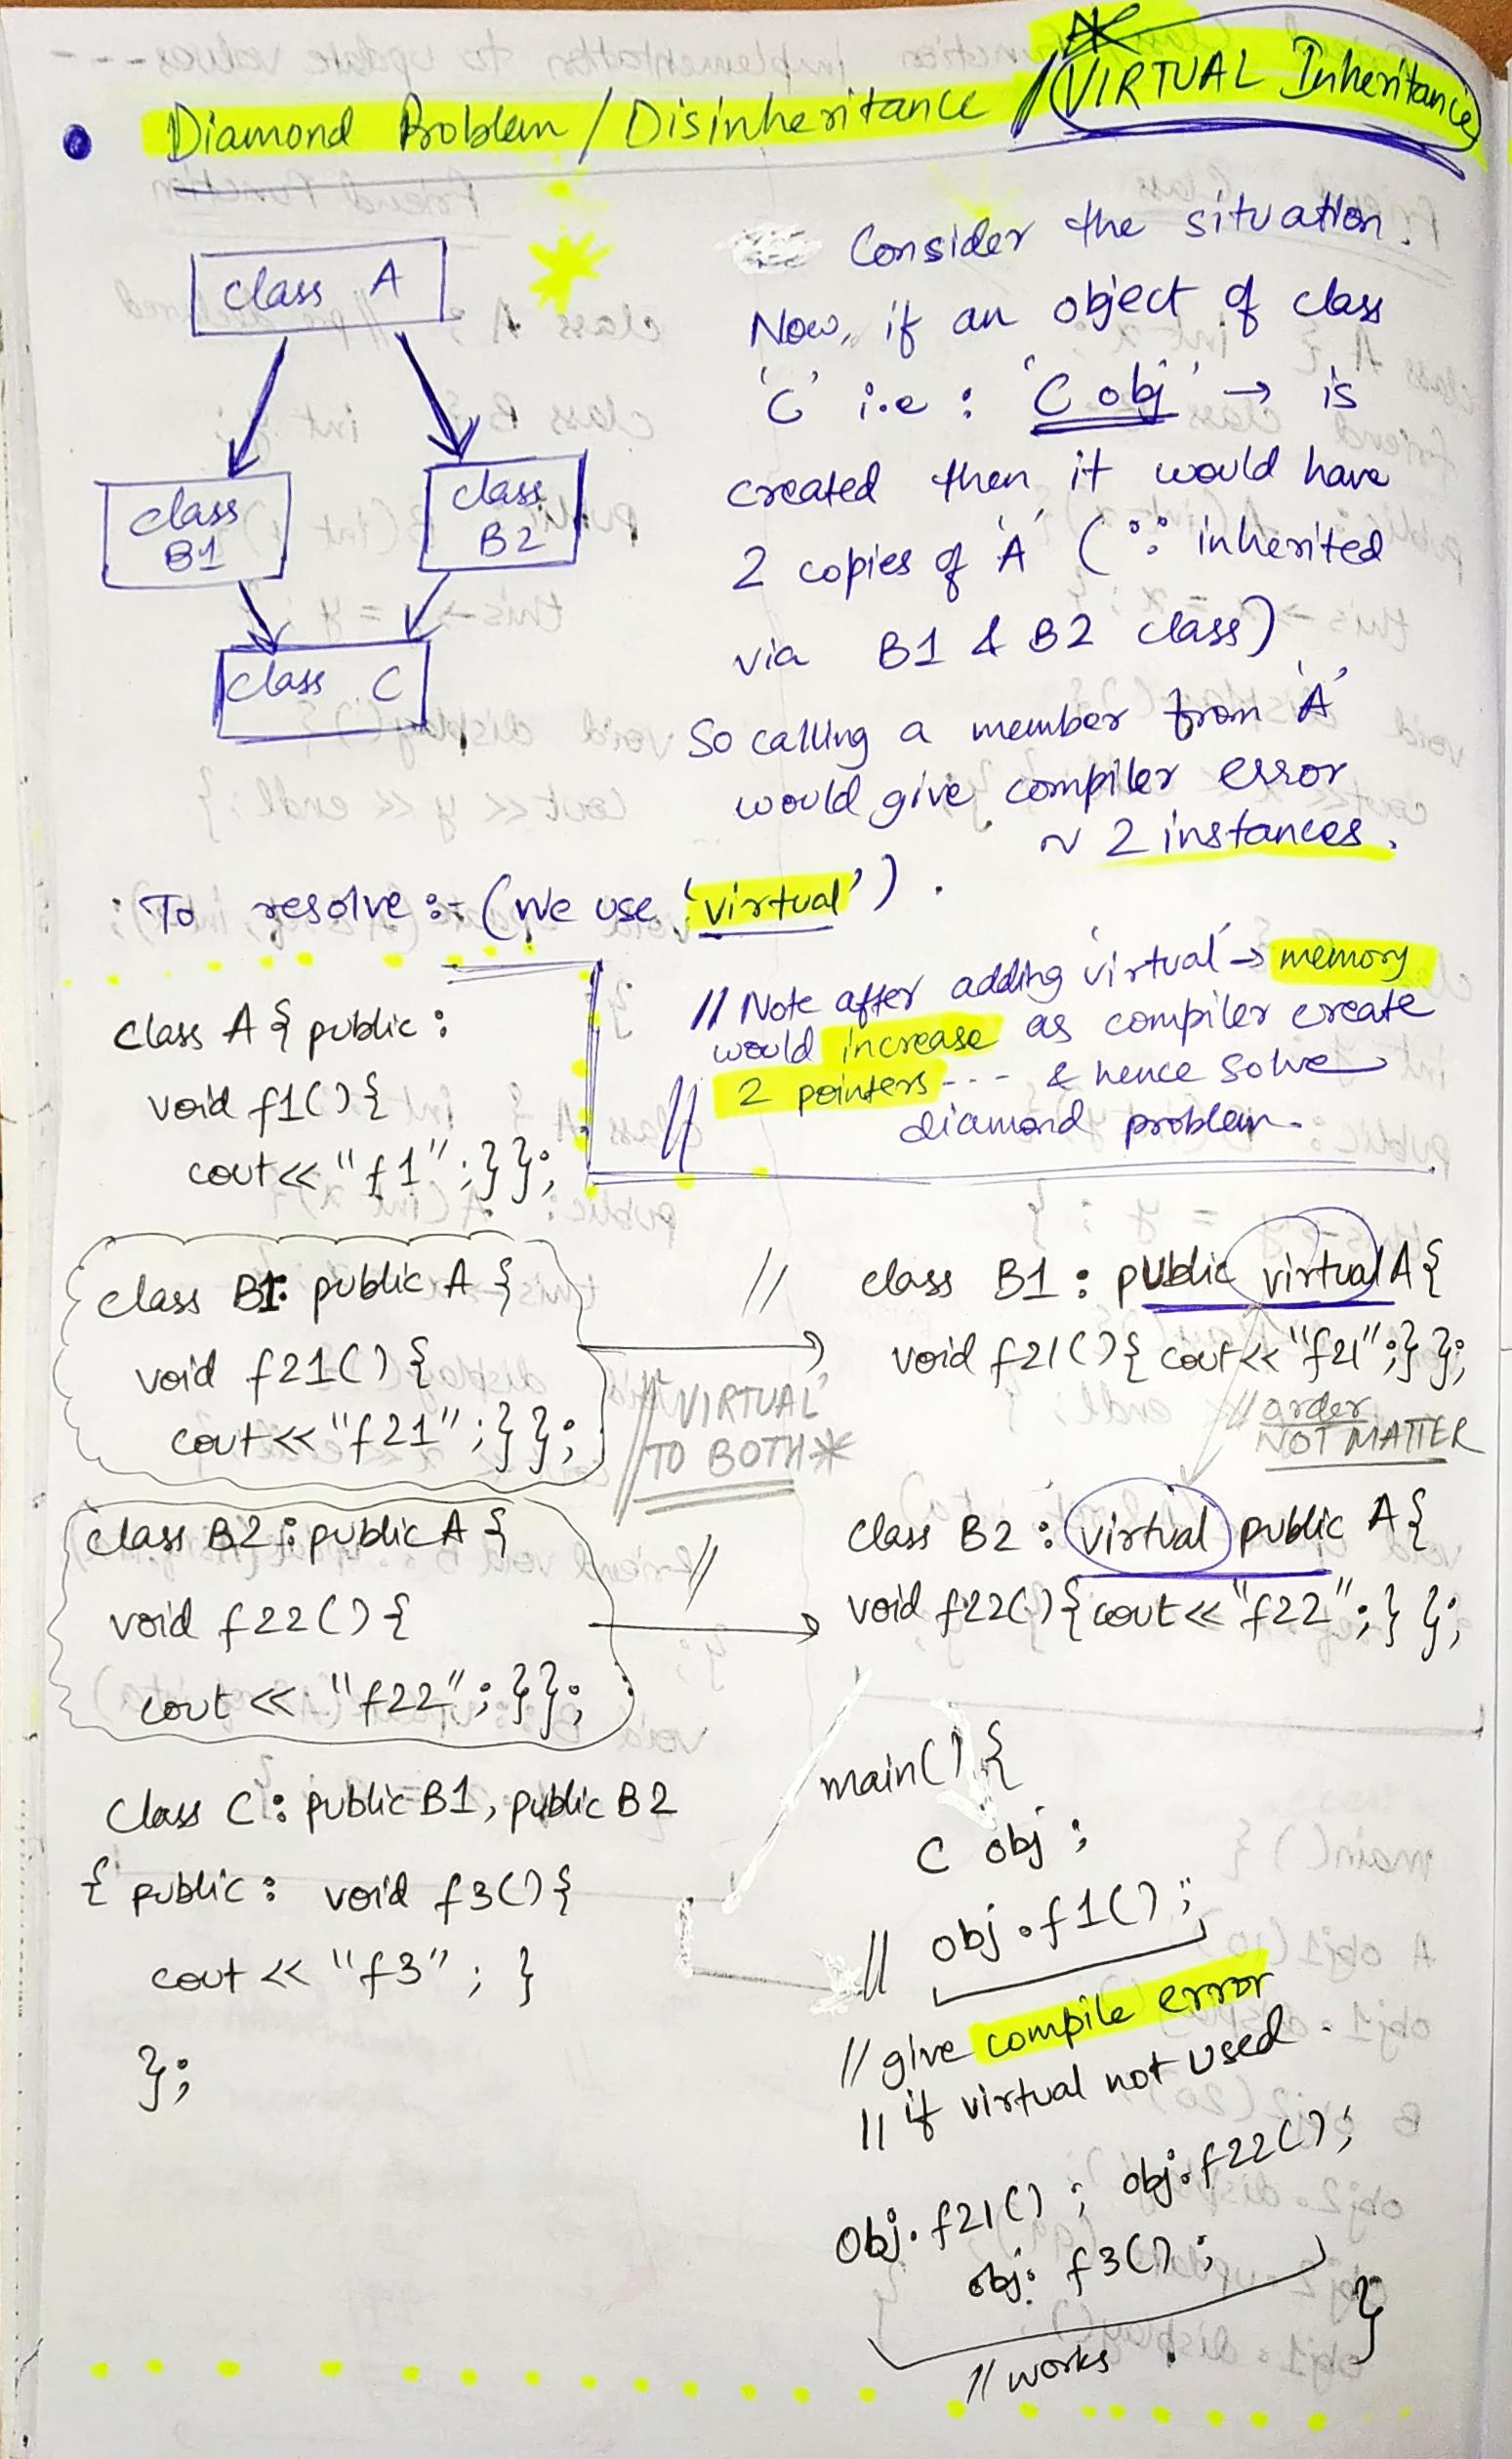 Diamond Problem / Disinheritance / VIRTUAL Inheritance
class A
class
B1
class
B2
class C
Consider the situation.
Now, if an object of class
'C' i.e : 'C obj' → is
created then it would have
2 copies of 'A' (∵ inherited
via B1 & B2 class)
So calling a member from 'A'
would give compiler error
~ 2 instances.
To resolve :- (We use 'virtual').
// Note after adding 'virtual' → memory
would increase as compiler create
// 2 pointers --- & hence solve
diamond problem.
class A { public :
void f1() {
cout << "f1" ; } };
class B1: public A {
void f21() {
cout << "f21" ; } };
//
// 'VIRTUAL'
// TO BOTH *
class B1 : public virtual A {
void f21() { cout << "f21" ; } };
// order
NOT MATTER
class B2 : public A {
void f22() {
cout << "f22" ; } };
//
class B2 : virtual public A {
void f22() { cout << "f22" ; } };
Class C : public B1, public B2
{ public : void f3() {
cout << "f3" ; }
};
main() {
C obj ;
// obj.f1() ;
// give compile error
// if virtual not used.
Obj. f21() ; obj.f22() ;
obj. f3() ;
}
// works